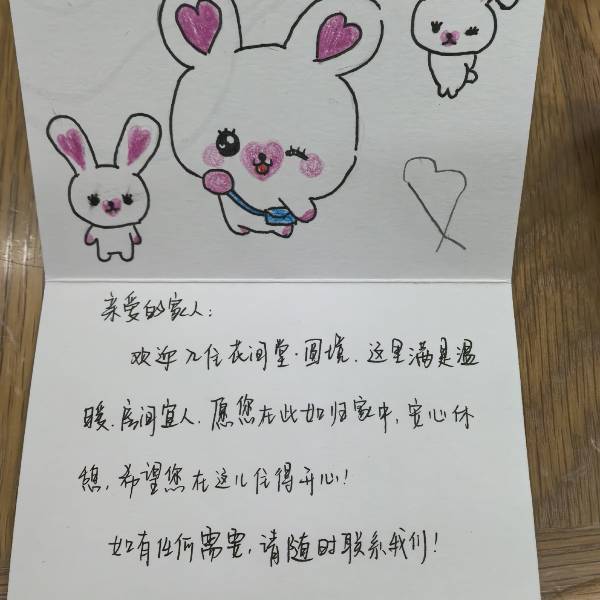 亲爱的家人：
欢迎入住花间堂·圆境.这里满是温
暖.房间宜人.愿您在此如归家中,安心休
憩,希望您在这儿住得开心!
如有任何需要,请随时联系我们!